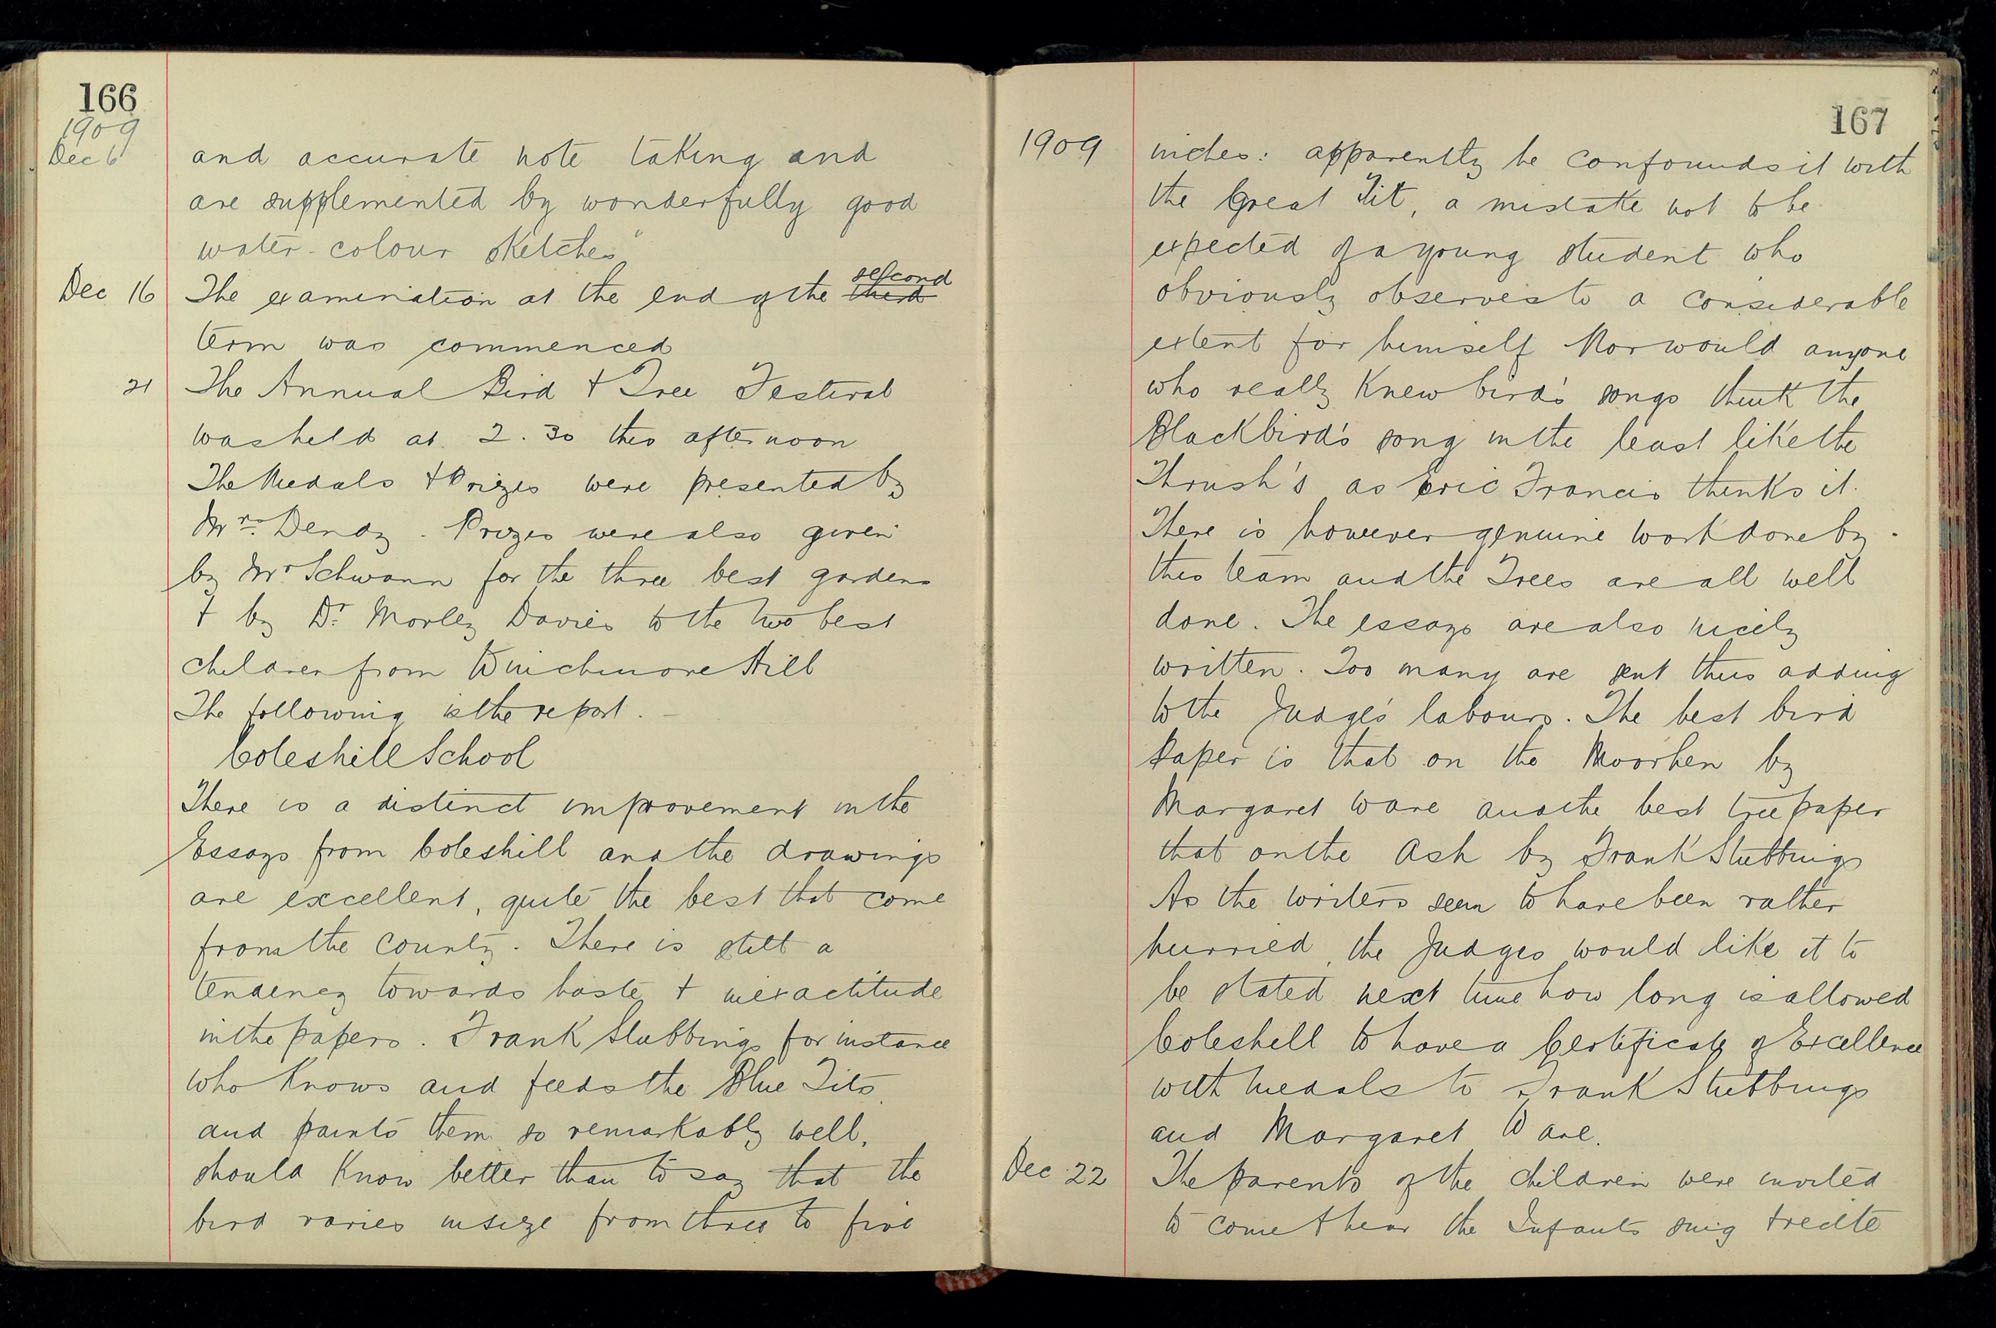 166
1909
Dec 6 and accurate note taking and
are supplemented by wonderfully good
water-colour sketches"
second
Dec 16 The examination at the end of the third
term was commenced
21 The Annual Bird & Tree Festival
was held at 2.30 this afternoon
The Medals & Prizes were presented by
Mrs. Dendy. Prizes were also given
by Mr Schwann for the three best gardens
& by Dr. Morley Davies to the two best
children from Winchmore Hill
The following is the report. —
Coleshill School
There is a distinct improvement in the
Essays from Coleshill and the drawings
are excellent, quite the best that come
from the county. There is still a
tendency towards haste & inexactitude
in the papers. Frank Stubbings for instance
who knows and feeds the Blue Tits
and paints them so remarkably well,
should know better than to say that the
bird varies in size from three to five
167
1909 inches: apparently he confounds it with
the Great Tit, a mistake not to be
expected of a young student who
obviously observes to a considerable
extent for himself Nor would anyone
who really knew bird's songs think the
Blackbird's song in the least like the
Thrush's as Eric Francis thinks it.
There is however genuine work done by
this team and the Trees are all well
done. The essays are also nicely
written. Too many are sent thus adding
to the Judge's labours. The best bird
Paper is that on the Moorhen by
Margaret Ware and the best tree paper
that on the Ash by Frank Stubbings
As the writers seem to have been rather
hurried, the Judges would like it to
be stated next time how long is allowed
Coleshill to have a Certificate of Excellence
with medals to Frank Stubbings
and Margaret Ware.
Dec 22 The parents of the children were invited
to come & hear the Infants sing & recite